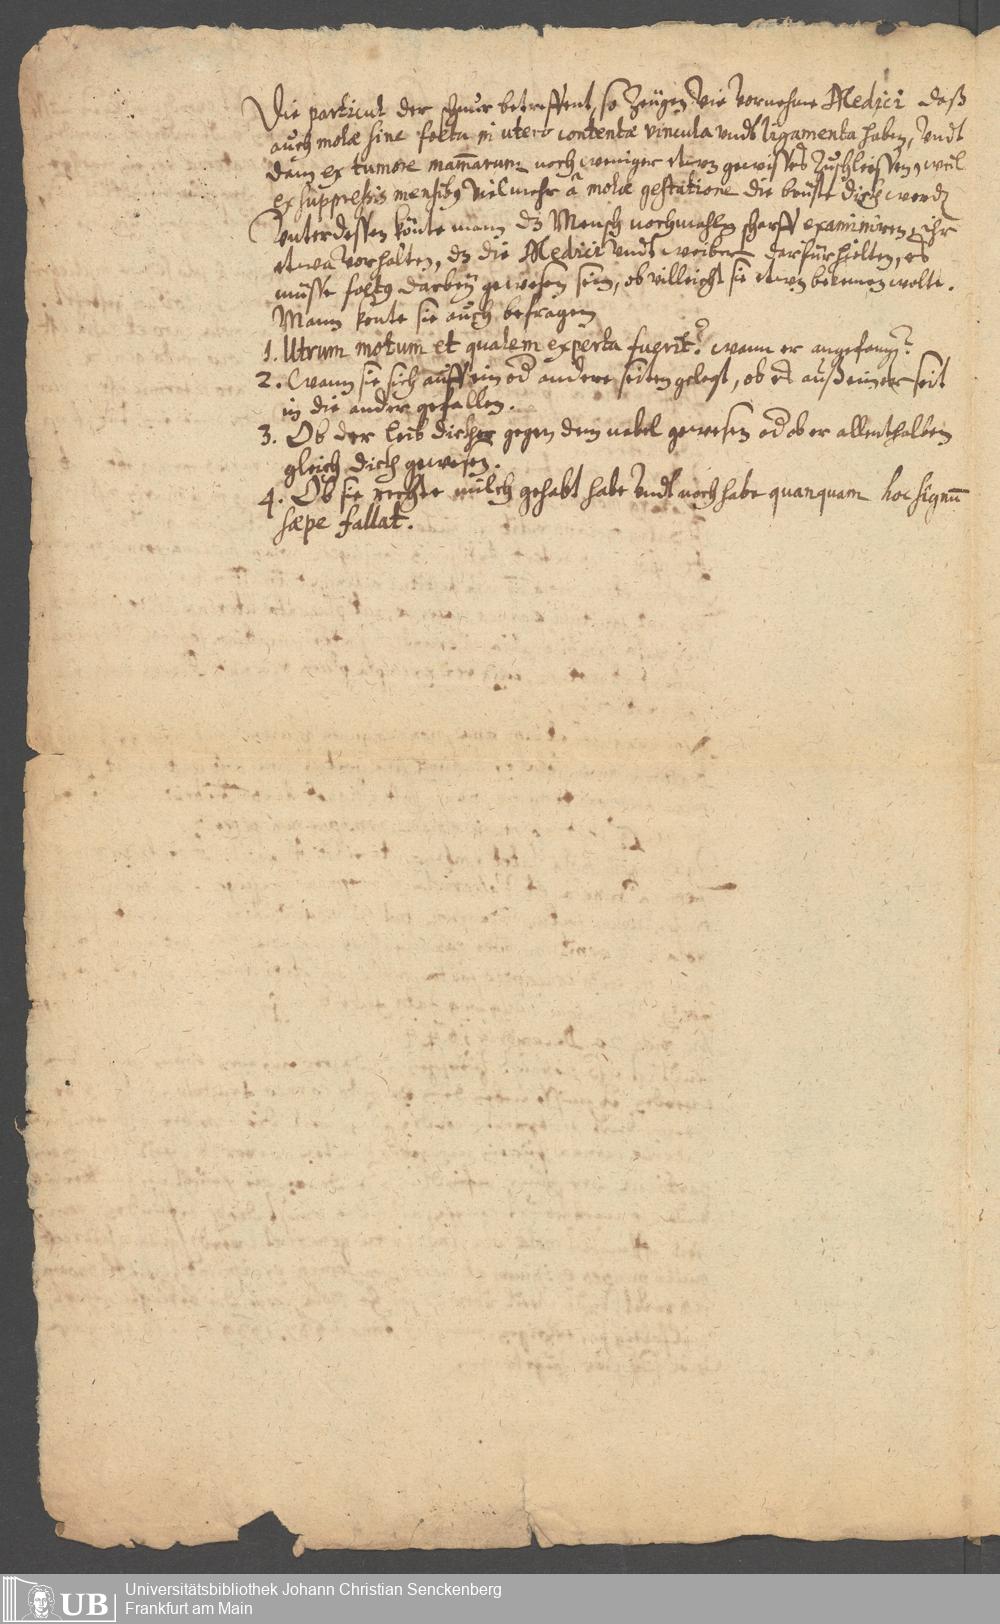 Die particul der schnur betreffent, so Zeugen die vornehme Medici daß
auch molæ sine foetu in utero contentæ vincula undt ligamenta haben, undt
dann ex tumore mam̄arum noch weniger etwz gewisses zuschliessen, weil
ex suppressis mensibus vielmehr â molæ gestatione die brüste dick werdē
Unterdessen könte mann dz Mensch nochmahln scharff examiniren, ihr
etwa vorhalten, dz die Medici undt weiber darfür hielten, es
müsse foetus darbey gewesen sein, ob villeicht sie etwz bekennen wolte.
Mann könte sie auch befragen
1. Utrum motum et qualem experta fuerit? wann er angefangē?
2. Wann sie sich auff ein od andere seiten gelegt, ob es auß einer seit
in die ander gefallen.
3. Ob der leib dicker gegen dem nabel gewesen od ob er allenthalben
gleich dick gewesen.
4. Ob sie rechte milch gehabt habe undt noch habe quanquam hoc signū
sæpe fallat.
UB
Universitätsbibliothek Johann Christian Senckenberg
Frankfurt am Main